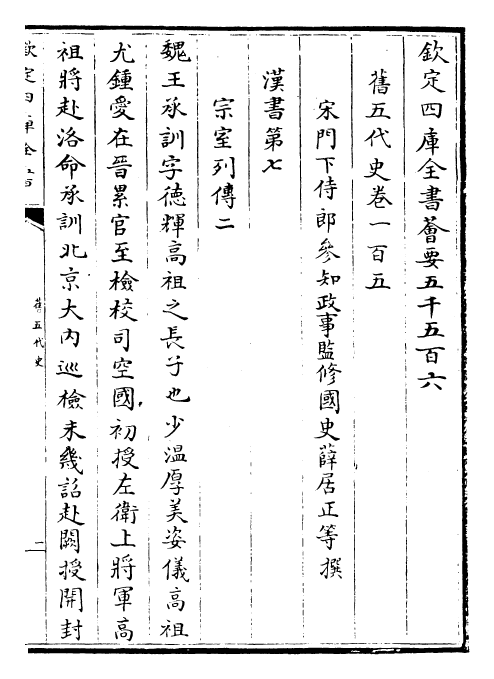 欽定四庫全書薈要五千五百六
舊五代史卷一百五
宋門下侍郎參知政事監修國史薛居正等撰
漢書第七
宗室列傳二
魏王承訓字德輝高祖之長子也少溫厚美姿儀高祖
尤鍾愛在晉累官至檢校司空國初授左衛上將軍高
祖將赴洛命承訓北京大內巡檢未幾詔赴闕授開封
欽定四庫全書
舊五代史